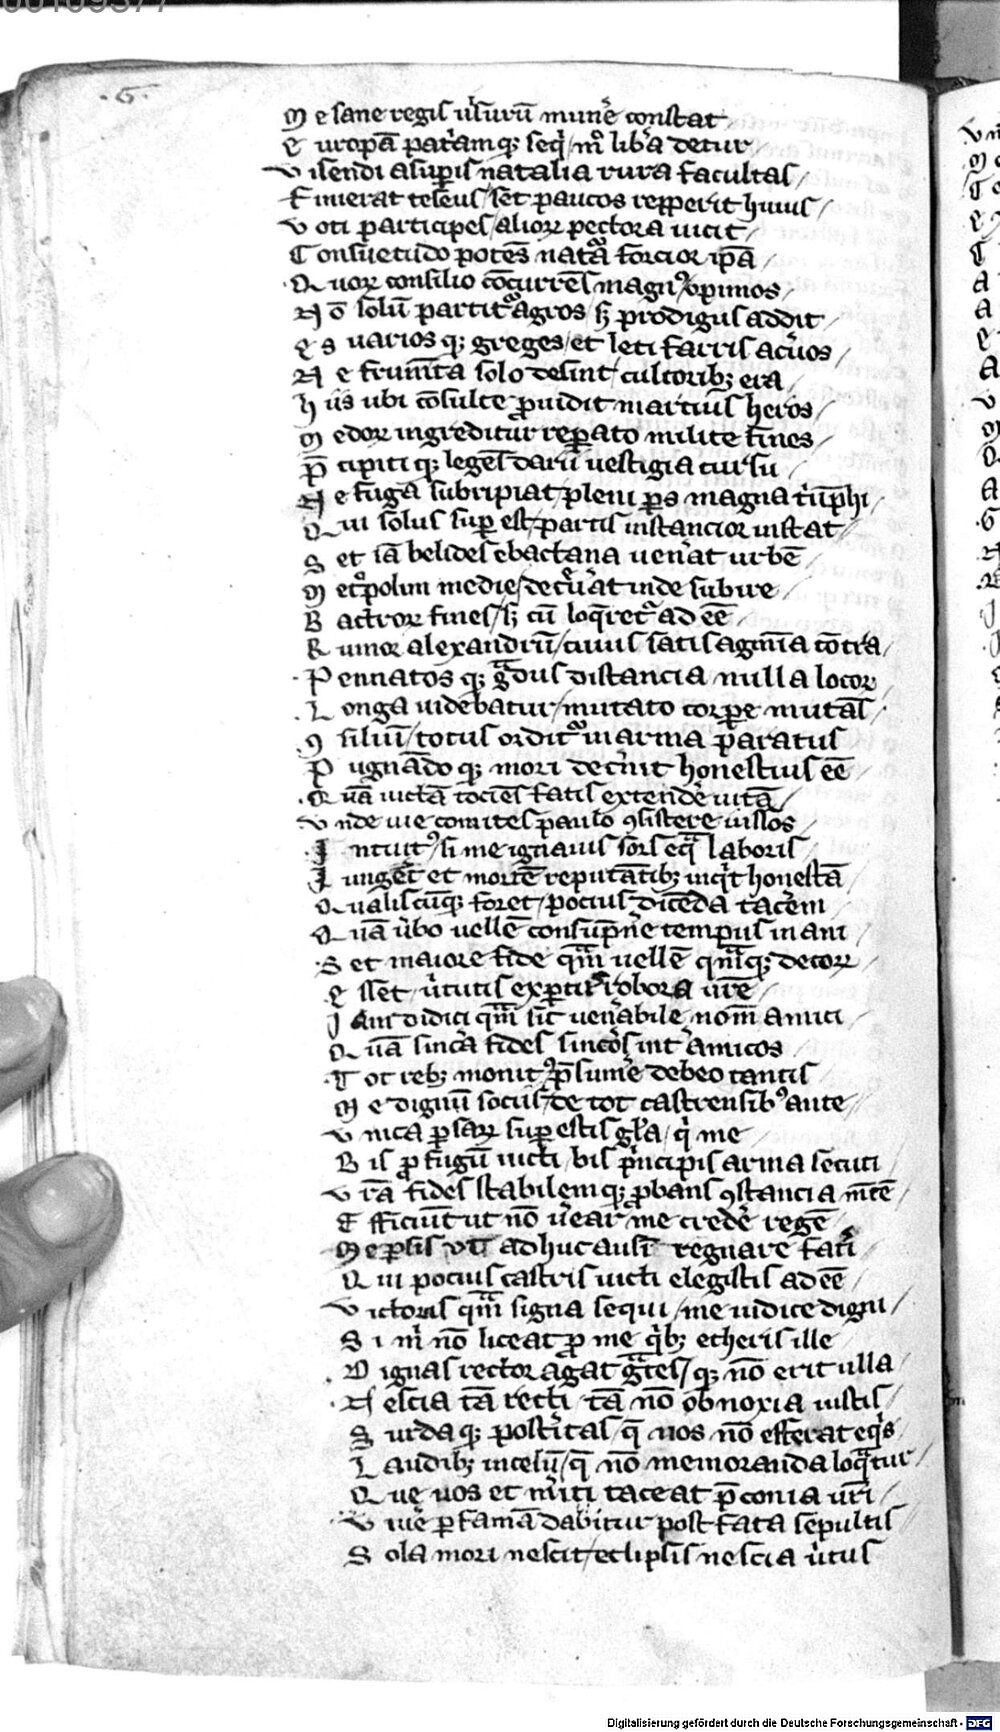 00109377
.G.
M e sane regis uˀsurū munˀe constat
E uropā patˀamq; seqˀ / mͥ libˀa detur
V isendi a supˀis natalia rura facultas /
F inierat teseus / set paucos repperit huius /
V oti participes / alioꝝ pectora uicit /
C onsuetudo potēs natᷓa forcior ipā /
Q uoꝝ consilio cōcurrēs magnꝰ opimos /
N ō solū partitᷣ agros / sꝫ prodigus addit /
E s uarios q; greges / et leti farris acˀuos /
N e frum̄ta solo desint / cultorib; era /
H iis ubi cōsulte ꝓuidit martius heros /
M edoꝝ ingreditur reꝑato milite fines /
P̄ cipiti q; legēs darii uestigia cursu /
N e fuga subripiat / pleni ꝑs magna tˀūphi /
Q ui solus suꝑ est / partis instancior instat /
S et iā belides ebactana uenˀat urbē /
M etͦpolim medie / decͣuˀat inde subire /
B actroꝝ fines / sꝫ cū loq̄retᷣ ad eē /
R umor alexandrū / cuius satis agmīa cōtˀa /
P ennatos q; gᷓdus distancia nulla locoꝝ
L onga uidebatur / mutato corꝑe mutās /
ꝯ siliū / totus orditᷣ in arma paratus
P ugnādo q; mori decˀnit honestius eē
Q uā uictā tociēs fatis extendˀe uitā /
V nde uie comites paulo ꝯsistere iussos /
I ntuitꝰ / si me ignauis sors eqᷓ laboris /
I ungˀet et mortē reputātib; inqͥt honestā
Q ualiscūq; foret / pocius dicēda tacˀem
Q uā uˀbo uellē consūpˀne tempus inani /
S et maiore fide qᷓm uellē qᷓmq; decoꝝ /
E sset uˀtutis exꝑtᷣ robora urē /
I am didici qᷓm sit uenˀabile nom̄ amici
Q uā sincˀa fides sincˀos intˀ amicos
T ot reb; monitꝰ / p̄sumˀe debeo tantis
M e dignū sociis / de tot castrensibꝰ ante /
V nica ꝑsaꝝ suꝑestis gl̄a / qͥ me /
B is ꝓfugū uicti / bis pͥncipis arma secuti
V r̄a fides stabilemq; ꝓbans ꝯstancia m̄tē /
E fficiūt ut nō uˀear me credˀe regē /
M e ꝑsis ad huc ausī regnare fatˀi /
Q ui pocius castris uicti elegistis ad eē /
V ictoris qᷓm signa sequi / me iudice digni /
S i mͥ nō liceat ꝓ me qͥb; etheris ille
D ignas rector agat gᷓtes / q; nō erit ulla /
N escia tā recti / tā nō obnoxia iustis /
S urda q; postˀitas / q̄ uos nō efferat eqͥs /
L audib; in celū / q̄ nō memoranda loqᷓtur /
Q ue uos et mˀiti taceat p̄conia ur̄i /
V iuˀe ꝑ famā dabitur post fata sepultis
S ola mori nescit / eclipsis nescia uˀtus
Digitalisierung gefördert durch die Deutsche Forschungsgemeinschaft - DFG